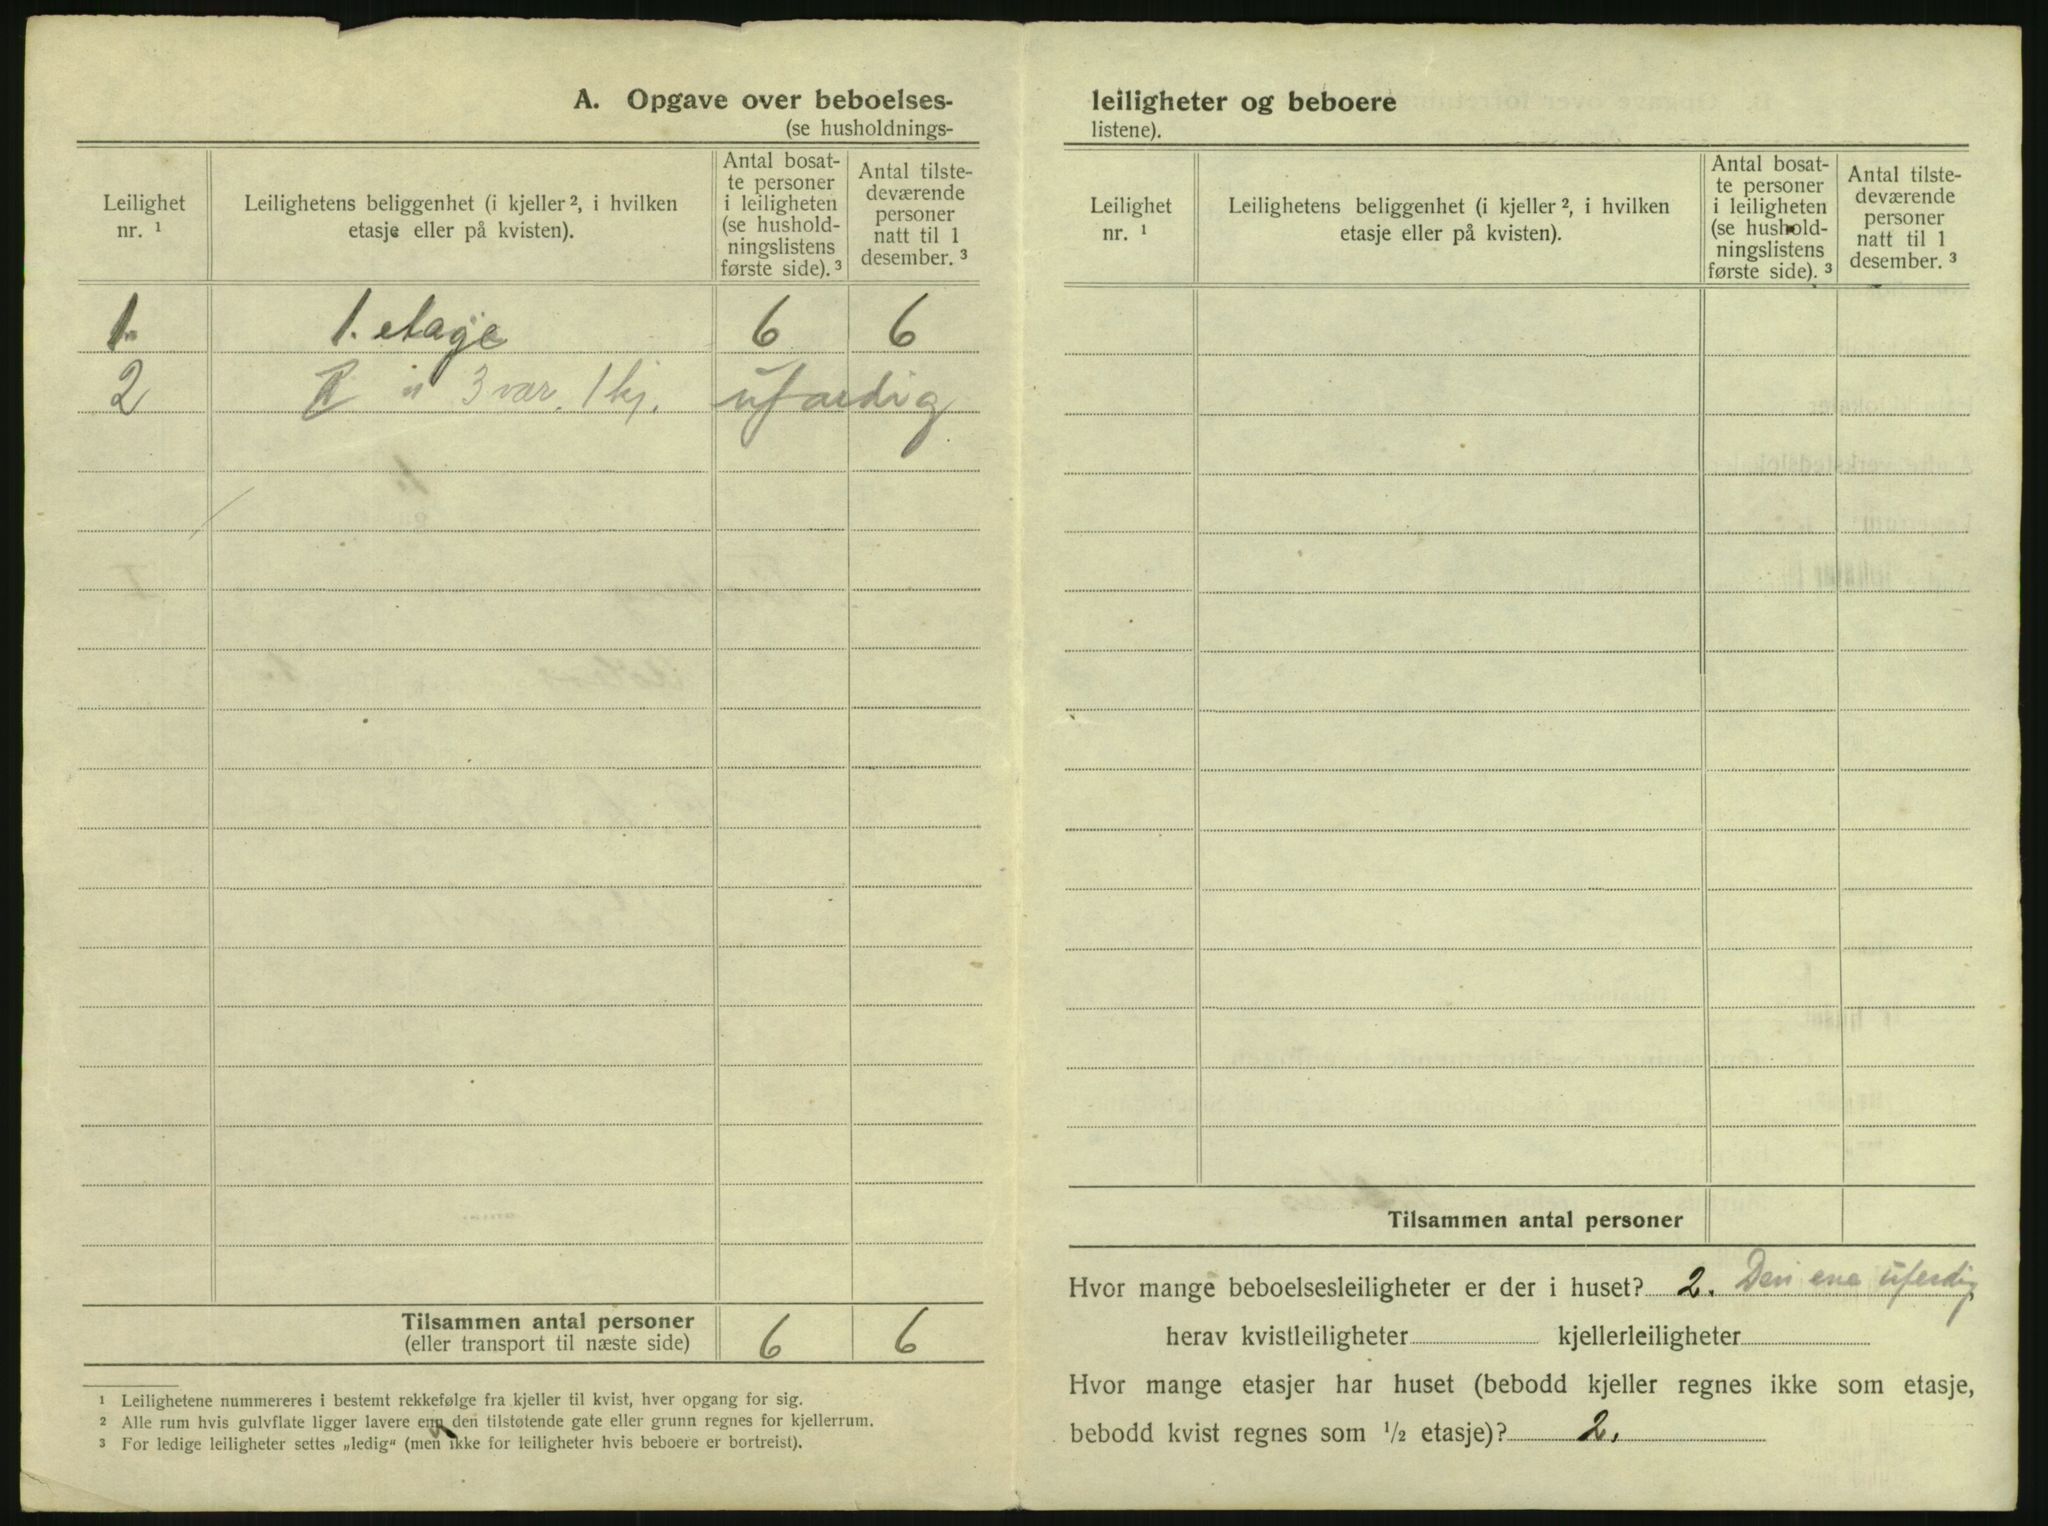 A. Opgave over beboelses-
(se husholdnings-
Leilighet nr. ¹
Leilighetens beliggenhet (i kjeller ², i hvilken
etasje eller på kvisten).
Antal bosat-
te personer
i leiligheten
(se hushold-
ningslistens
første side). ³
Antal tilste-
deværende
personer
natt til 1
desember. ³
1. 1. etage 6 6
2 " 3 vær. 1 kj. ufærdig
Tilsammen antal personer 6 6
(eller transport til næste side)
¹ Leilighetene nummereres i bestemt rekkefølge fra kjeller til kvist, hver opgang for sig.
² Alle rum hvis gulvflate ligger lavere enn den tilstøtende gate eller grunn regnes for kjellerrum.
³ For ledige leiligheter settes „ledig“ (men ikke for leiligheter hvis beboere er bortreist).
leiligheter og beboere
listene).
Leilighet
nr. ¹
Leilighetens beliggenhet (i kjeller ², i hvilken
etasje eller på kvisten).
Antal bosat-
te personer
i leiligheten
(se hushold-
ningslistens
første side). ³
Antal tilste-
deværende
personer
natt til 1
desember. ³
Tilsammen antal personer
Hvor mange beboelsesleiligheter er der i huset? 2. Den ene uferdig
herav kvistleiligheter kjellerleiligheter
Hvor mange etasjer har huset (bebodd kjeller regnes ikke som etasje,
bebodd kvist regnes som ½ etasje)? 2.